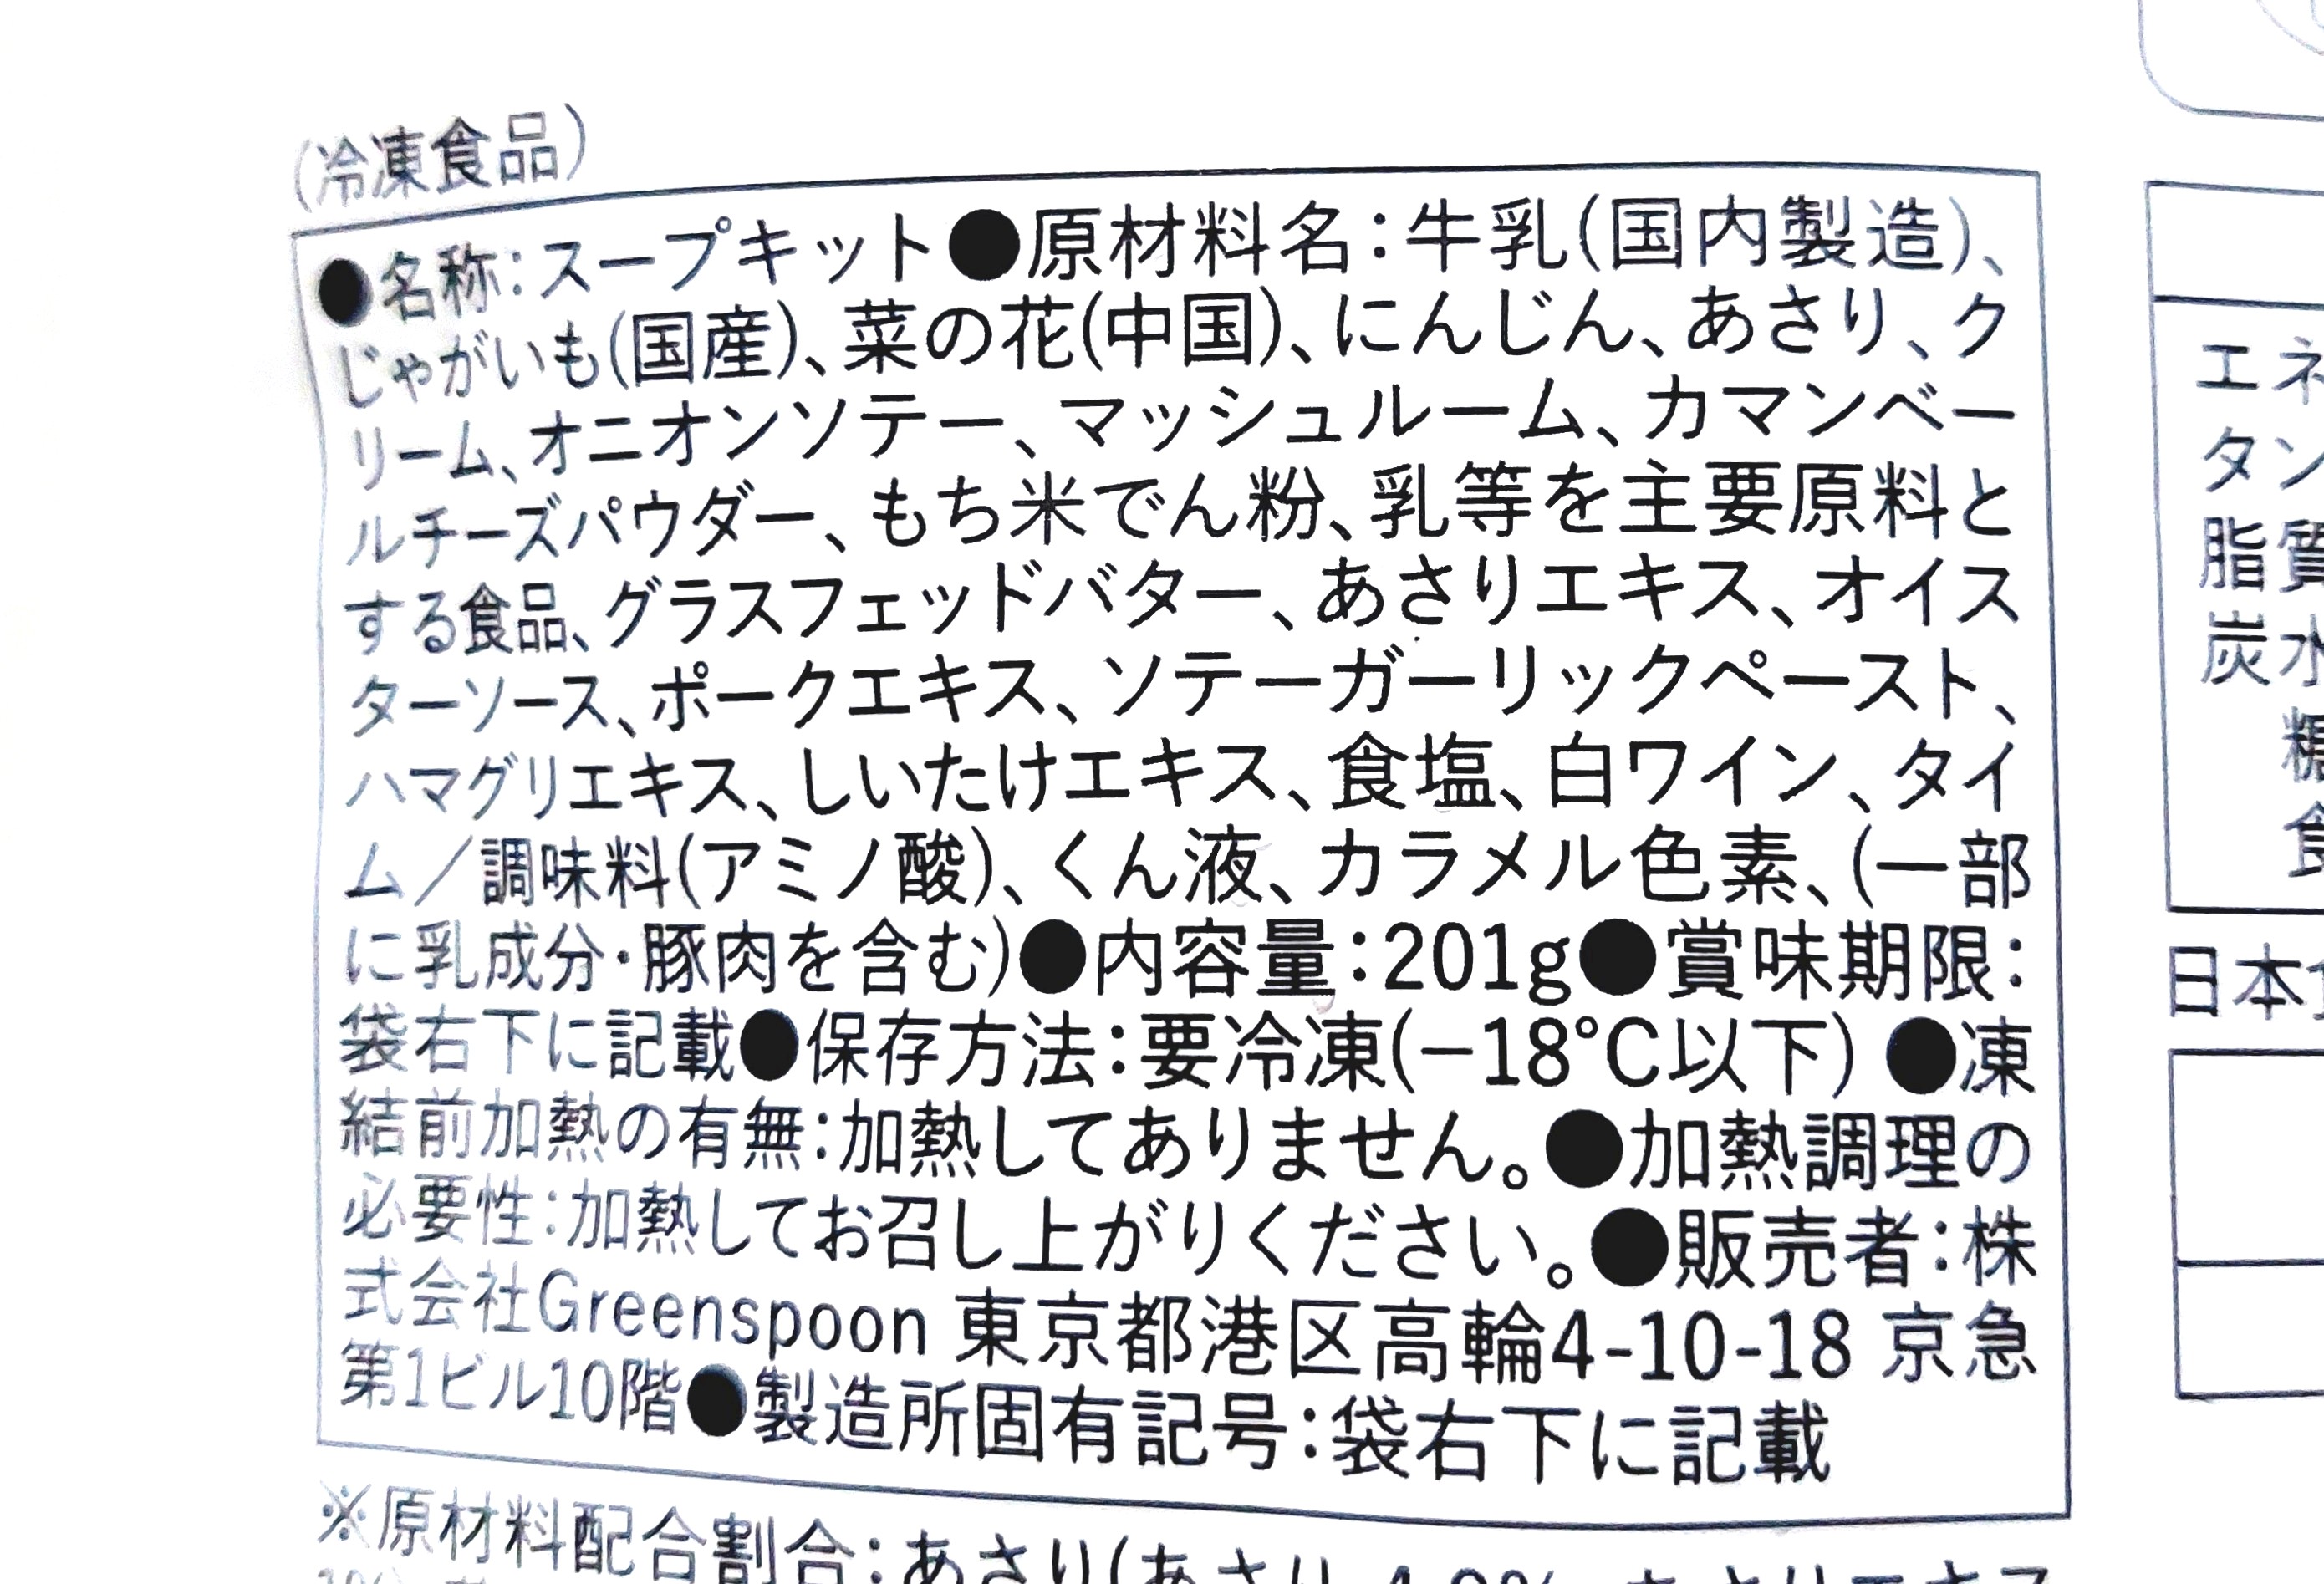 (冷凍食品)
●名称:スープキット●原材料名:牛乳(国内製造)、
じゃがいも(国産)、菜の花(中国)、にんじん、あさり、ク
リーム、オニオンソテー、マッシュルーム、カマンベー
ルチーズパウダー、もち米でん粉、乳等を主要原料と
する食品、グラスフェッドバター、あさりエキス、オイス
ターソース、ポークエキス、ソテーガーリックペースト、
ハマグリエキス、しいたけエキス、食塩、白ワイン、タイ
ム／調味料(アミノ酸)、くん液、カラメル色素、(一部
に乳成分・豚肉を含む)●内容量:201g●賞味期限:
袋右下に記載●保存方法:要冷凍(−18℃以下) ●凍
結前加熱の有無:加熱してありません。●加熱調理の
必要性:加熱してお召し上がりください。●販売者:株
式会社Greenspoon 東京都港区高輪4-10-18 京急
第1ビル10階●製造所固有記号:袋右下に記載
※原材料配合割合:あさり(あさり
エネ
タン
脂質
炭水
糖
食
日本